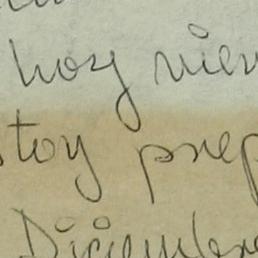 hoy vier
stoy prep
Diciembre